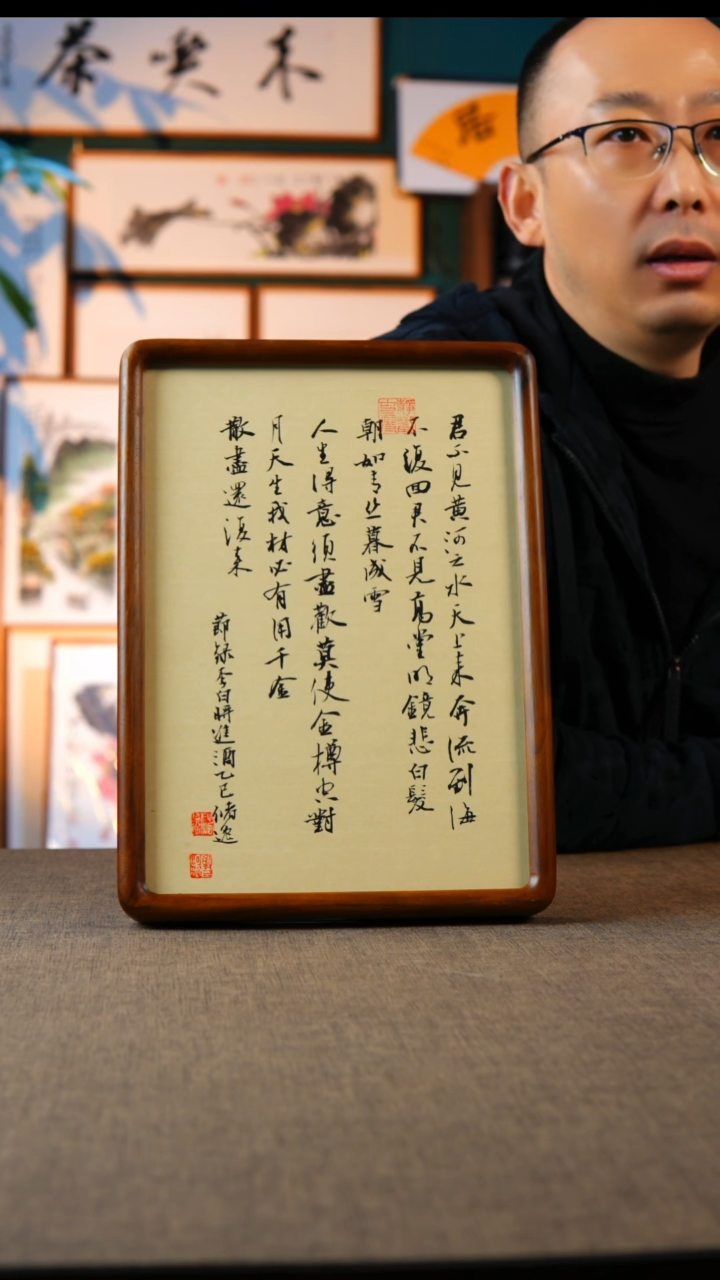 来喫茶
君不見黃河之水天上来奔流到海
不復回君不見高堂明鏡悲白髮
朝如青丝暮成雪
人生得意須盡歡莫使金樽空對
月天生我材必有用千金
散盡還復来
節録李白將進酒乙巳脩逸